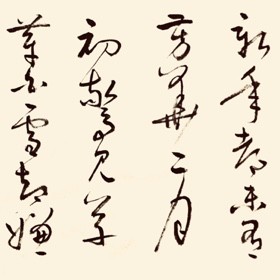 新年都未有
芳華二月
初驚見草
芽白雪却嫌